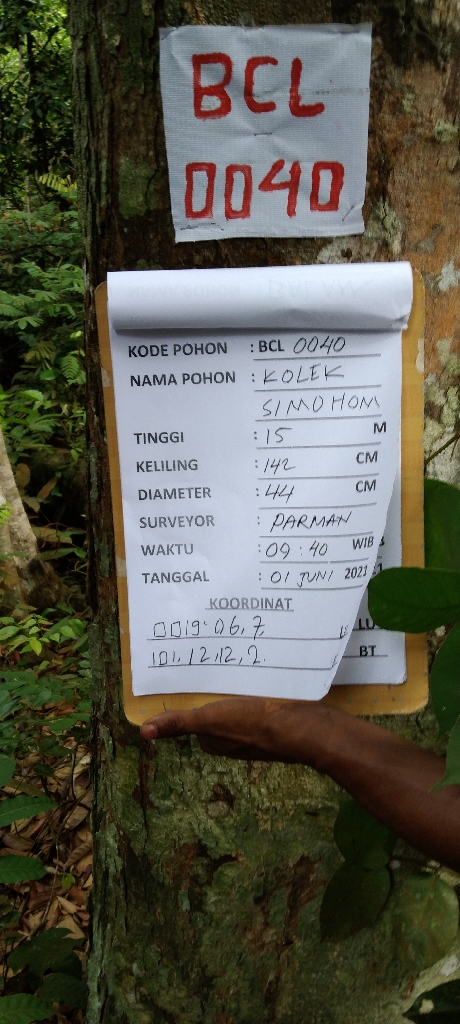 BCL
0040
KODE POHON : BCL 0040
NAMA POHON : KOLEK
SIMOHOM
TINGGI : 15 M
KELILING : 142 CM
DIAMETER : 44 CM
SURVEYOR : PARMAN
WAKTU : 09:40 WIB
TANGGAL : 01 JUNI 2021
KOORDINAT
0019.06,7 LU
101,12.12,2. BT